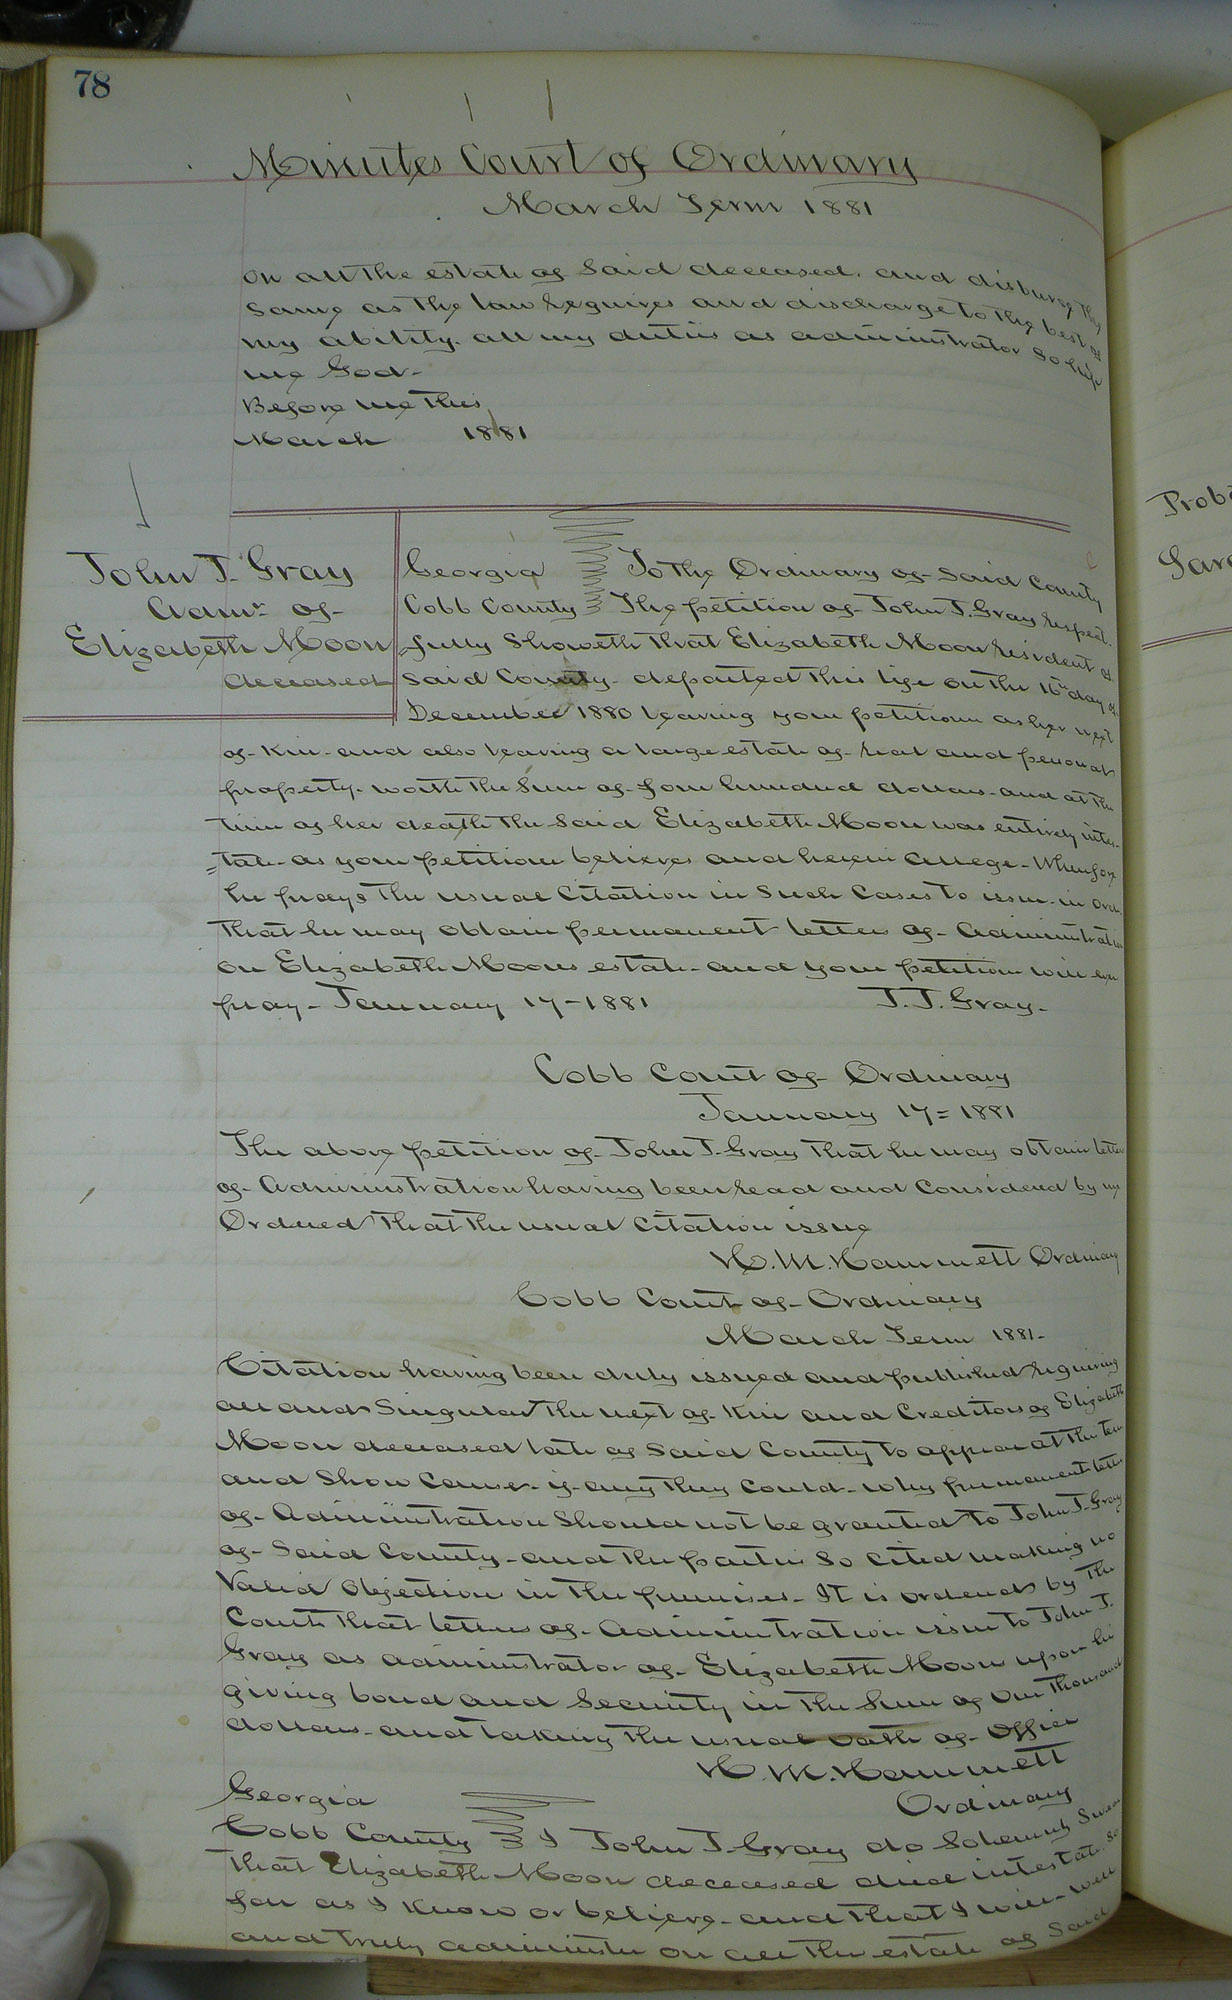 78
Minutes Court of Ordinary
March Term 1881
on all the estate of said deceased, and disburse the
same as the law requires and discharge to the best of
my ability all my duties as administrator So help
me God-
Before me this
March 1881
John J. Gray
Admr of
Elizabeth Moon
deceased
Georgia To the Ordinary of said County
Cobb County The petition of John J. Gray respect-
fully Showeth that Elizabeth Moon resident of
said County departed this life on the 16th day of
December 1880 leaving your petitioner as her next
of Kin and also leaving a large estate of real and personal
property worth the Sum of four hundred dollars and at the
time of her death the said Elizabeth Moon was entirely intes-
=tate as your petitioner believes and herein allege- Wherefore
he prays the usual Citation in Such Cases to issue in order
that he may obtain permanent letters of Administration
on Elizabeth Moons estate and your petitioner will ever
pray- January 17-1881 J.J. Gray-
Cobb Court of Ordinary
January 17= 1881
The above petition of John J. Gray that he may obtain letters
of Administration having been read and Considered by me
Ordered that the usual Citation issue
H. M. Hammett Ordinary
Cobb Court of Ordinary
March Term 1881-
Citation having been duly issued and published requiring
all and Singular the next of Kin and Creditors of Elizabeth
Moon deceased late of said County to appear at this term
and Show Cause if any they Could why permanent letters
of Administration Should not be granted to John J. Gray
of Said County and the parties So cited making no
Valid objection in the premises- It is ordered by the
Court that letters of Administration issue to John J.
Gray as administrator of Elizabeth Moon upon his
giving bond and Security in the Sum of One thousand
dollars and taking the usual oath of Office
H. M. Hammett
Ordinary
Georgia
Cobb County I John J. Gray do Solemnly Swear
that Elizabeth Moon deceased died intestate so
far as I know or believe and that I will well
and truly administer on all the estate of Said
Prob
Sar